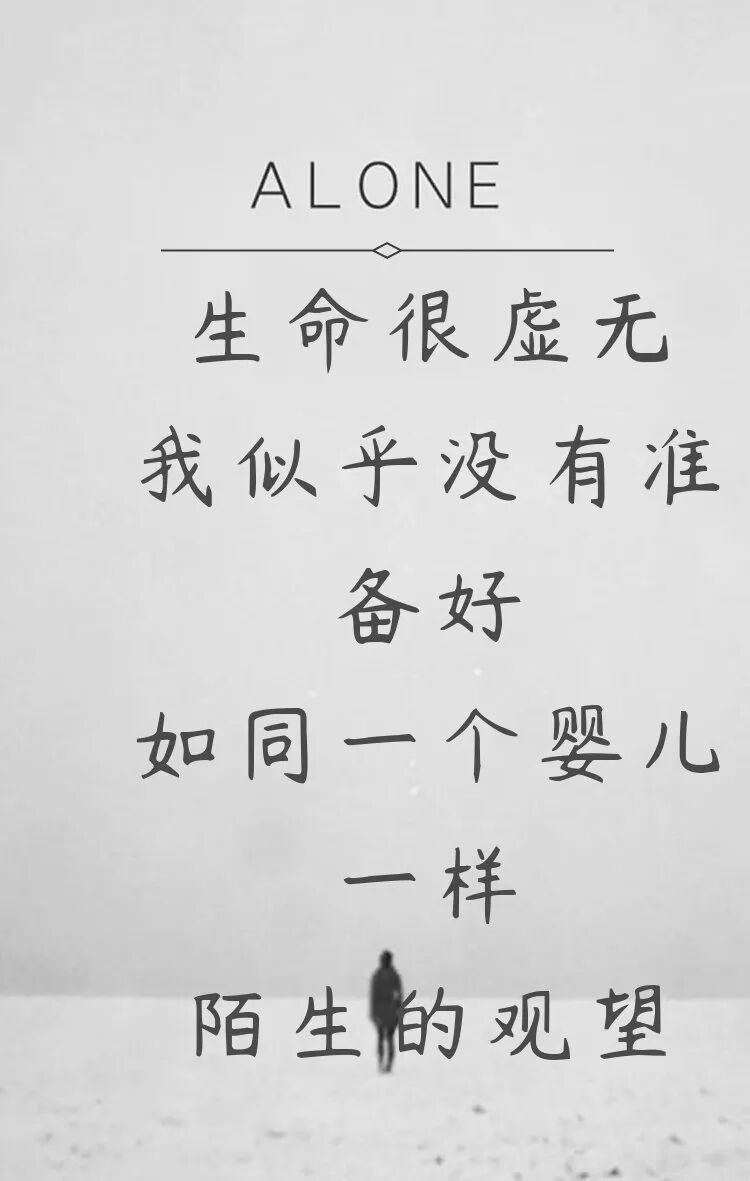 ALONE
生命很虚无
我似乎没有准
备好
如同一个婴儿
一样
陌生的观望